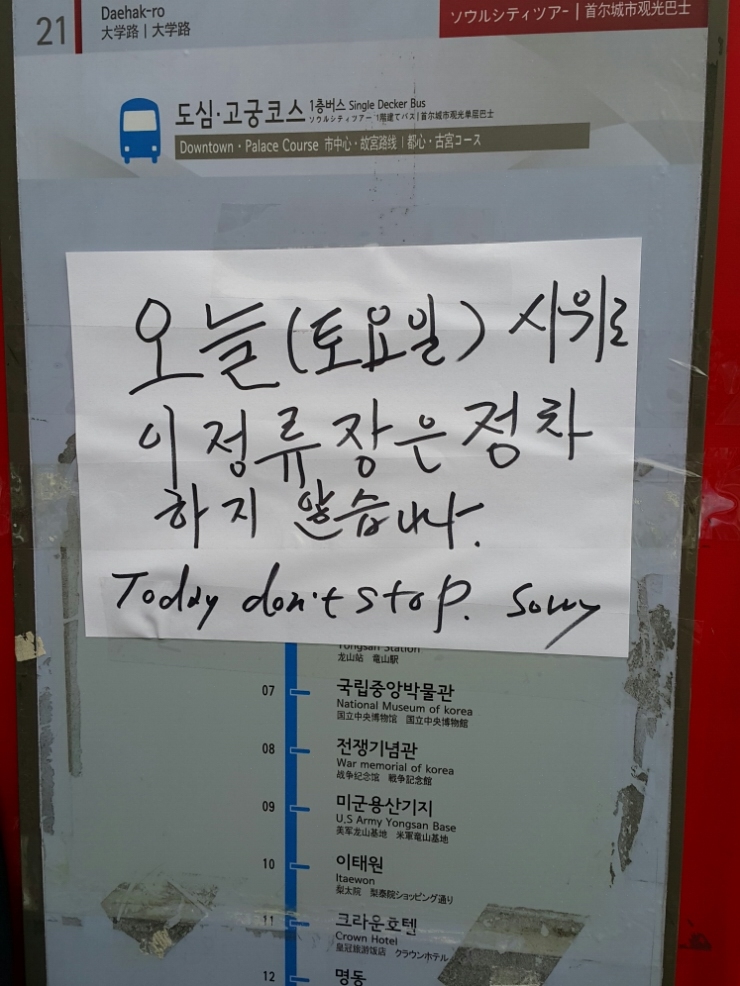 21
Daehak-ro
大学路 | 大学路
ソウルシティツアー | 首尔城市观光巴士
도심·고궁코스 1층버스 Single Decker Bus
ソウルシティツアー 1階建てバス | 首尔城市观光单层巴士
Downtown · Palace Course 市中心·故宫路线 | 都心·古宮コース
오늘(토요일) 시위로
이 정류장은 정차
하지 않습니다.
Today don't stop. Sorry
Yongsan Station
龙山站 竜山駅
07 국립중앙박물관
National Museum of korea
国立中央博物馆 国立中央博物館
08 전쟁기념관
War memorial of korea
战争纪念馆 戦争記念館
09 미군용산기지
U.S Army Yongsan Base
美军龙山基地 米軍竜山基地
10 이태원
Itaewon
梨太院 梨泰院ショッピング通り
11 크라운호텔
Crown Hotel
皇冠旅游饭店 クラウンホテル
12 명동